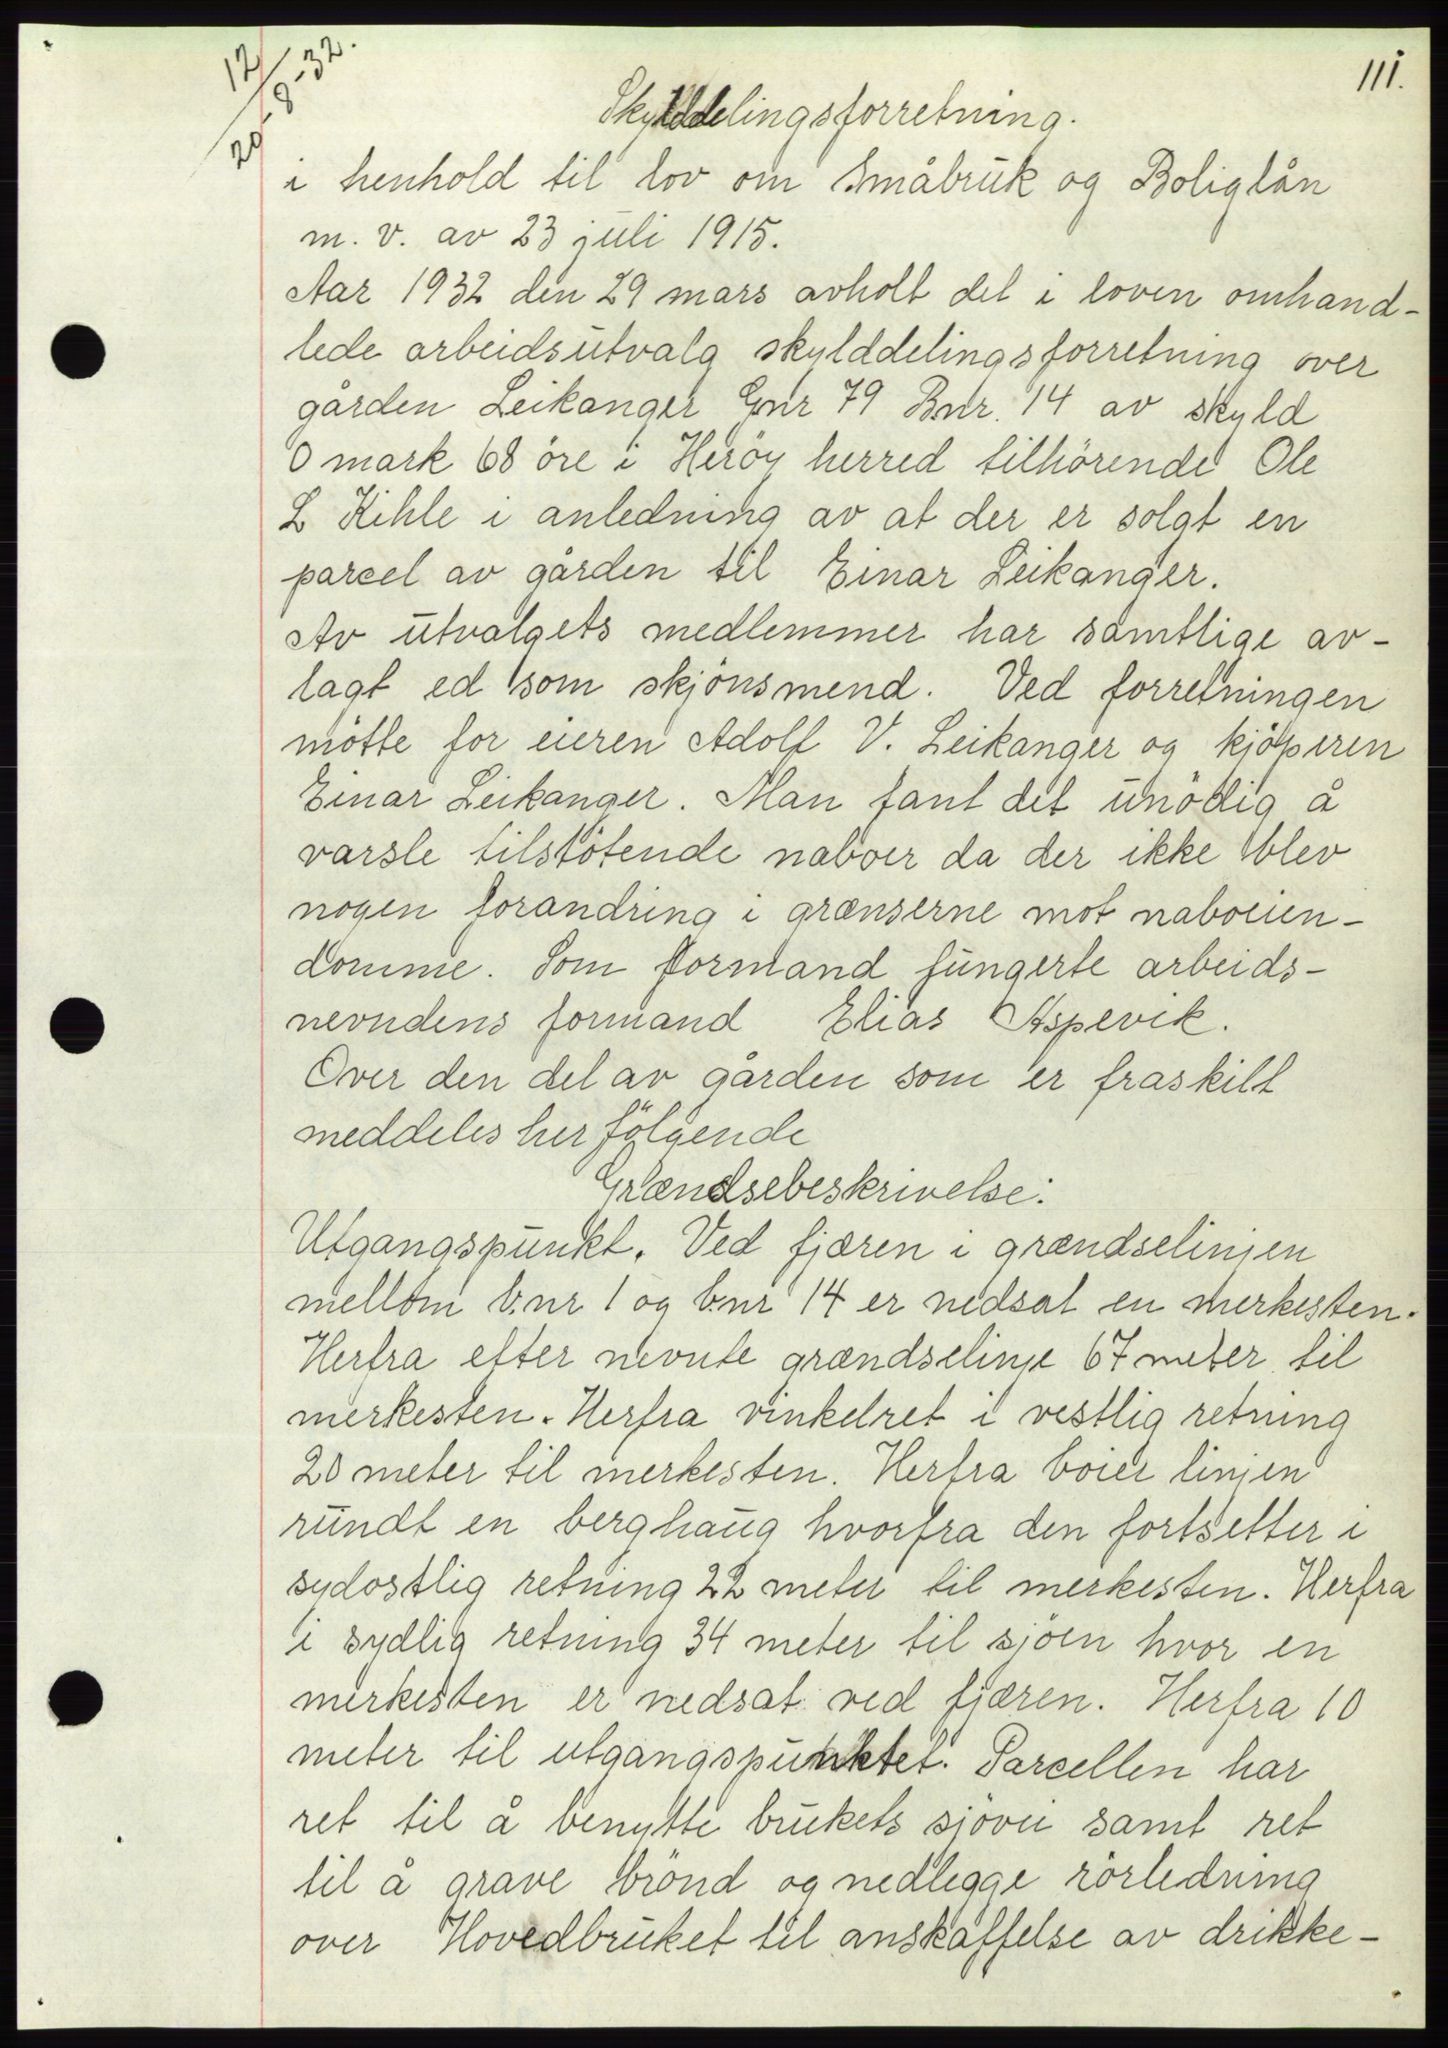 12/20-8-32.
111.
Skylddelingsforretning.
i henhold til lov om Småbruk og Boliglån
m. v. av 23 juli 1915.
Aar 1932 den 29 mars avholt det i loven omhand-
lede arbeidsutvalg skylddelingsforretning over
gården Leikanger Gnr 79 Bnr. 14 av skyld
0 mark 68 öre i Heröy herred tilhörende Ole
L Kihle i anledning av at der er solgt en
parcel av gården til Einar Leikanger.
Av utvalgets medlemmer har samtlige av-
lagt ed som skjönsmend. Ved forretningen
mötte for eieren Adolf V. Leikanger og kjöperen
Einar Leikanger. Man fant det unödig å
varsle tilstötende naboer da der ikke blev
nogen forandring i grænserne mot naboeien-
domme. Som formand fungerte arbeids-
nevndens formand Elias Aspevik.
Over den del av gården som er fraskilt
meddeles her fölgende
Grændsebeskrivelse:
Utgangspunkt. Ved fjæren i grændselinjen
mellom b.nr 1 og b.nr 14 er nedsat en merkesten.
Herfra efter nevnte grændselinje 67 meter til
merkesten. Herfra vinkelret i vestlig retning
20 meter til merkesten. Herfra boier linjen
rundt en berghaug hvorfra den fortsetter i
sydostlig retning 22 meter til merkesten. Herfra
i sydlig retning 34 meter til sjöen hvor en
merkesten er nedsat ved fjæren. Herfra 10
meter til utgangspunktet. Parcellen har
ret til å benytte brukets sjövei samt ret
til å grave brönd og nedlegge rörledning
over Hovedbruket til anskaffelse av drikke-